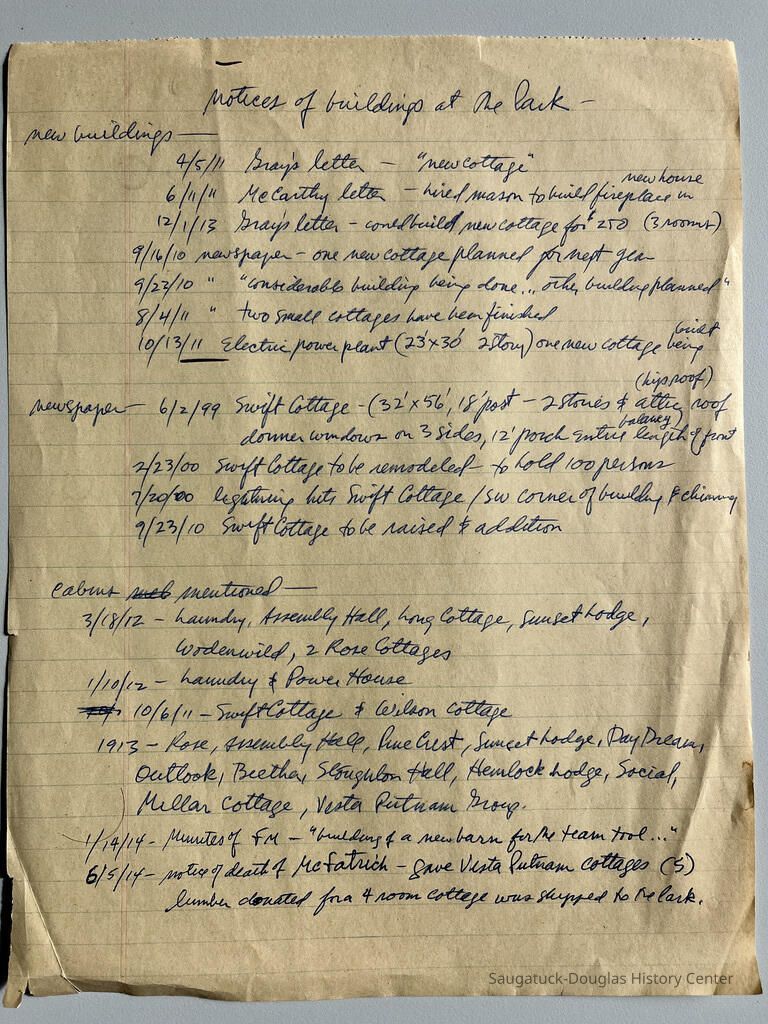 Notices of buildings at the Park —
new buildings —
4/5/11 Gray's letter — "new cottage"
6/11/11 McCarthy letter — hired mason to build fireplace in new house
12/1/13 Gray's letter — could build new cottage for $250 (3 rooms)
9/16/10 newspaper — one new cottage planned for next year
9/23/10 " "considerable building being done... other building planned"
8/4/11 " two small cottages have been finished
10/13/11 Electric power plant (23'x30' 2 story) one new cottage being built
newspaper — 6/2/99 Swift Cottage — (32'x56', 18' post — 2 stories & attic, roof (hip roof)
dormer windows on 3 sides, 12' porch entire length of front balcony
2/23/00 Swift Cottage to be remodeled to hold 100 persons
7/20/00 lightning hits Swift Cottage / SW corner of building & chimney
9/23/10 Swift Cottage to be raised & addition
Cabins mentioned —
3/18/12 — Laundry, Assembly Hall, Long Cottage, Sunset Lodge,
Wodenwild, 2 Rose Cottages
1/10/12 — Laundry & Power House
10/6/11 — Swift Cottage & Wilson Cottage
1913 — Rose, Assembly Hall, Pine Crest, Sunset Lodge, Day Dream,
Outlook, Beetha, Stoughton Hall, Hemlock Lodge, Social,
Millar Cottage, Vesta Putnam Group.
1/14/14 — Minutes of FM — "building of a new barn for the team too!..."
6/5/14 — notice of death of McFatrich — gave Vesta Putnam cottages (5)
lumber donated for a 4 room cottage was shipped to the Park.
Saugatuck-Douglas History Center